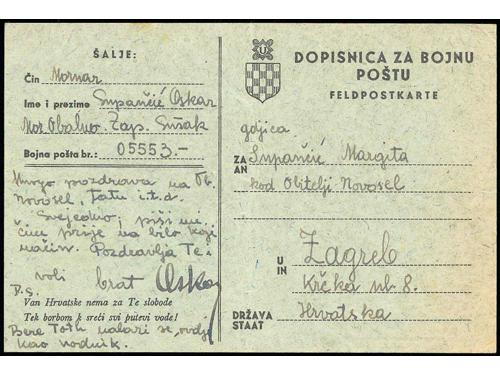 ŠALJE:
Čin Mornar
Ime i prezime Supančić Oskar
Mor. Obalno. Zap. Sušak
Bojna pošta br.: 05553.-
Mnogo pozdrava na Ob.
Novosel, Tatu i.t.d.
Svejedno, piši mi,
čim prije na bilo koji
način. Pozdravlja Te i
voli brat Oskar
P.S.
Van Hrvatske nema za Te slobode
Tek borbom k sreći svi putevi vode!
Bere Toth nalazi se ovdje
kao vodnik.
U
DOPISNICA ZA BOJNU
POŠTU
FELDPOSTKARTE
gdjica
ZA
AN Supančić Margita
kod Obitelji Novosel
U
IN Zagreb
Krčka ul. 8.
DRŽAVA
STAAT Hrvatska